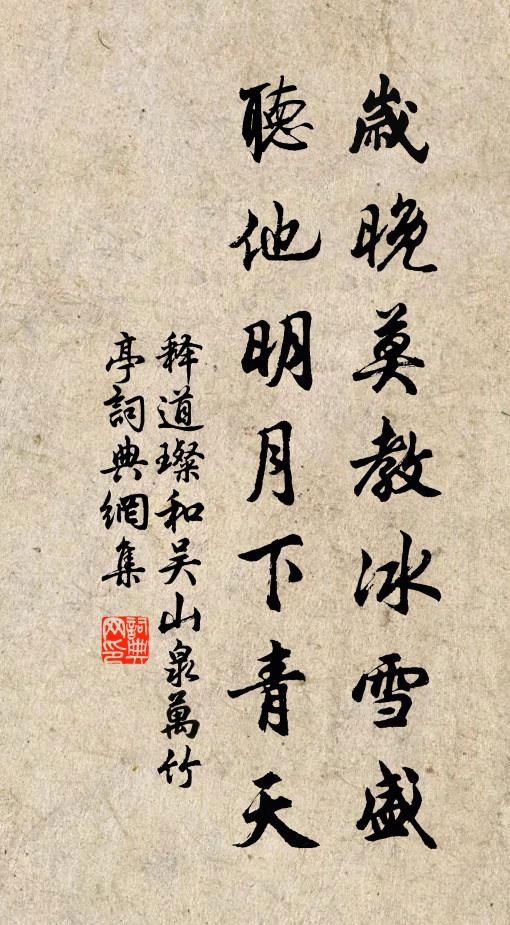 歲晚莫教冰雪盛
聽他明月下青天
释道璨和吴山泉萬竹
亭詞典網集
詞典网印